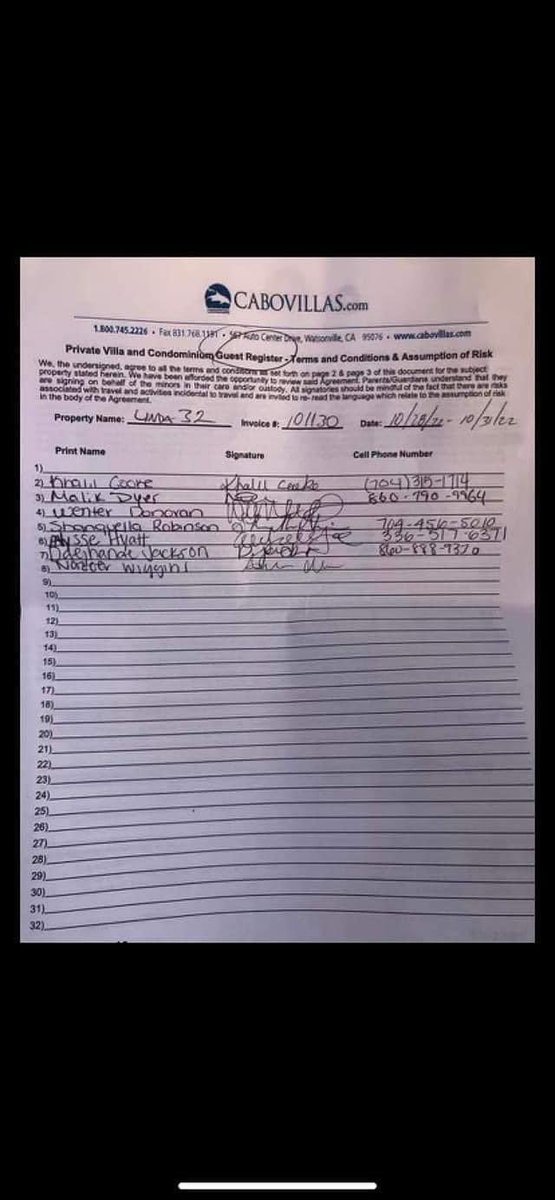 CABOVILLAS.com
1.800.745.2226 • Fax 831.768.1191 • 567 Auto Center Drive, Watsonville, CA 95076 • www.cabovillas.com
Private Villa and Condominium Guest Register - Terms and Conditions & Assumption of Risk
We, the undersigned, agree to all the terms and conditions as set forth on page 2 & page 3 of this document for the subject
property stated herein. We have been afforded the opportunity to review said Agreement. Parents/Guardians understand that they
are signing on behalf of the minors in their care and/or custody. All signatories should be mindful of the fact that there are risks
associated with travel and activities incidental to travel and are invited to re-read the language which relate to the assumption of risk
in the body of the Agreement.
Property Name: LINDA 32 Invoice #: 101130 Date: 10/28/22 - 10/31/22
Print Name Signature Cell Phone Number
1)
2) Khalil Cooke Khalil Cooke (704) 315-1714
3) Malik Dyer 860-790-9964
4) Wenter Donovan
5) Shanquella Robinson 704-456-5010
6) Alysse Hyatt 336-517-6371
7) Dejhanae Jackson 860-888-9320
8) Nazeer Wiggins
9)
10)
11)
12)
13)
14)
15)
16)
17)
18)
19)
20)
21)
22)
23)
24)
25)
26)
27)
28)
29)
30)
31)
32)